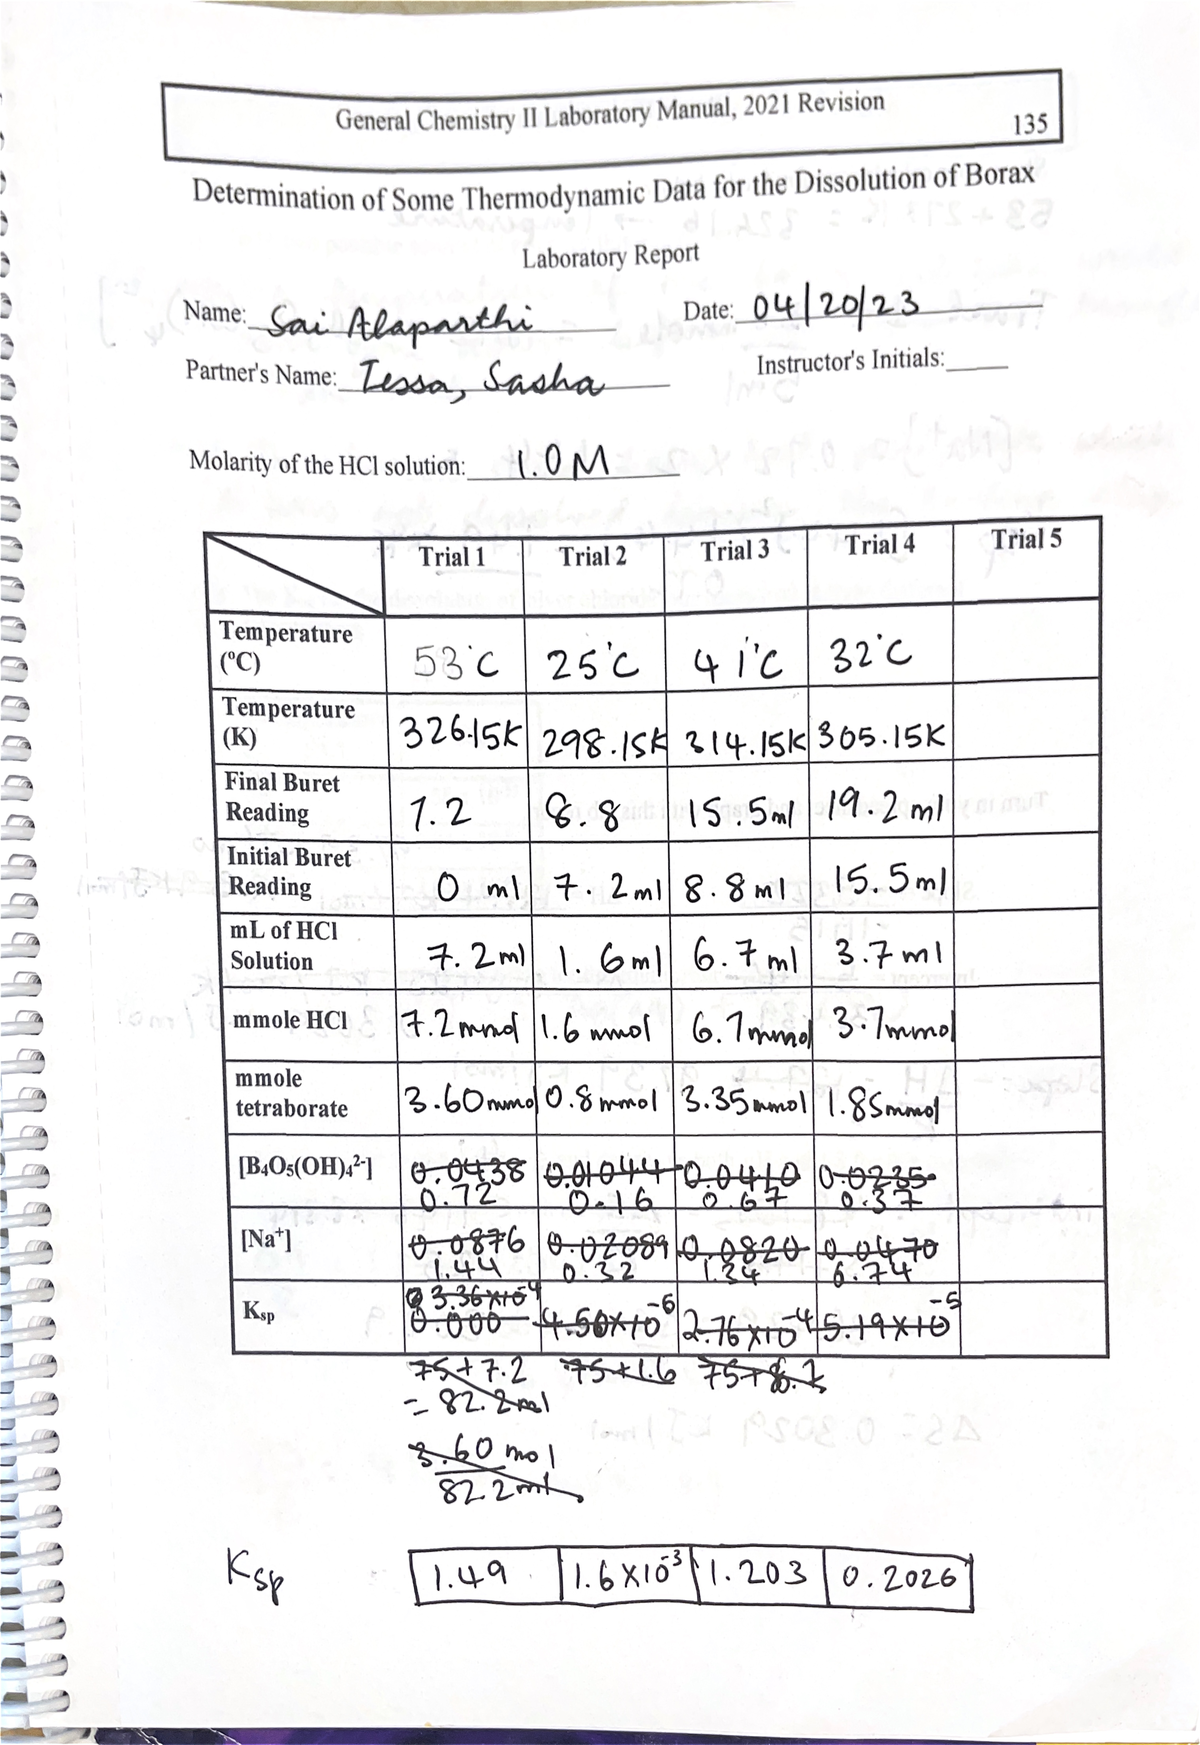 General Chemistry II Laboratory Manual, 2021 Revision
135
Determination of Some Thermodynamic Data for the Dissolution of Borax
Laboratory Report
Name: Sai Alaparthi Date: 04/20/23
Partner's Name: Tessa, Sasha Instructor's Initials:
Molarity of the HCl solution: 1.0M
Trial 1 Trial 2 Trial 3 Trial 4 Trial 5
Temperature
(ºC) 53°C 25°C 41°C 32°C
Temperature
(K) 326.15K 298.15K 314.15K 305.15K
Final Buret
Reading 7.2 8.8 15.5ml 19.2ml
Initial Buret
Reading 0 ml 7.2ml 8.8ml 15.5ml
mL of HCl
Solution 7.2ml 1.6ml 6.7ml 3.7ml
mmole HCl 7.2mmol 1.6mmol 6.7mmol 3.7mmol
mmole
tetraborate 3.60mmol 0.8mmol 3.35mmol 1.85mmol
[B4O5(OH)4²⁻] 0.0438 0.01044 0.0410 0.0235
0.72 0.16 0.67 0.37
[Na⁺] 0.0876 0.02089 0.0820 0.0470
1.44 0.32 1.34 6.74
3.36×10⁻⁴
Ksp 0.000 4.50×10⁻⁶ 2.76×10⁻⁴ 5.19×10⁻⁵
75+7.2 75+1.6 75+6.7
= 82.2ml
3.60 mol
82.2ml
Ksp 1.49 1.6×10⁻³ 1.203 0.2026